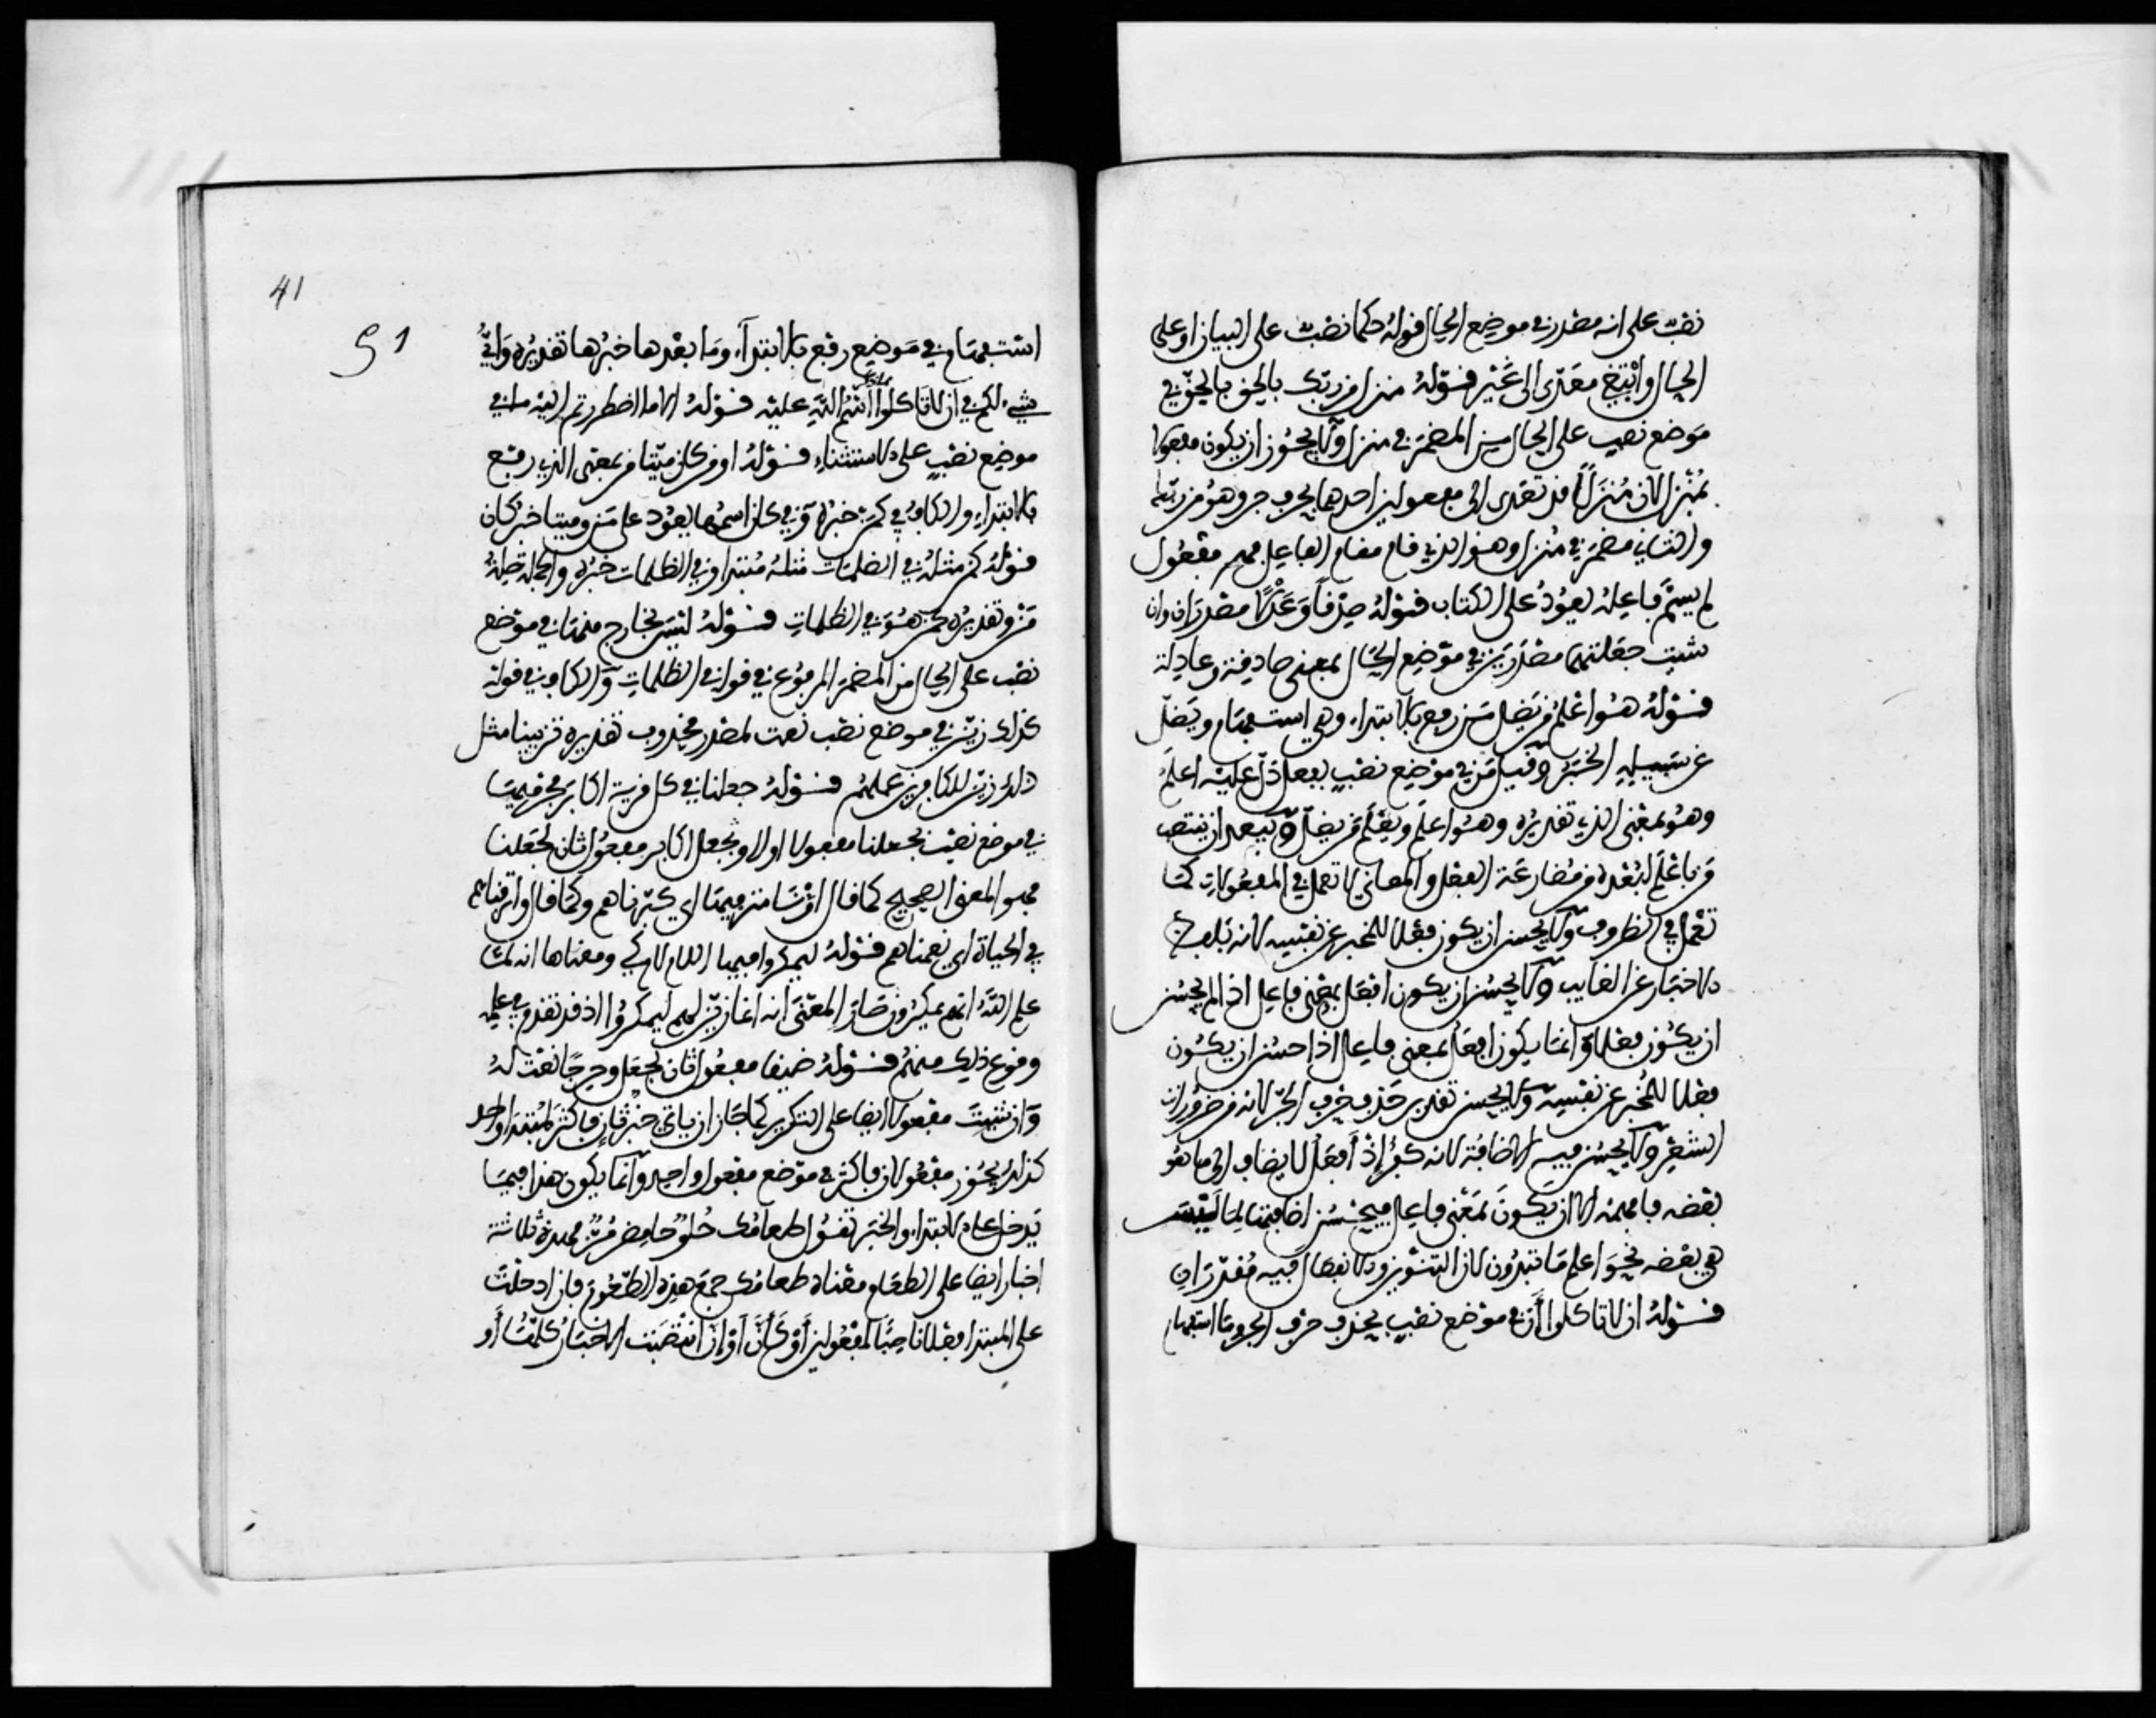 نصب على انه مصدر في موضع الحال قوله حكما نصب على البيان او على
الحال وابتغي معدى الى غير قوله منزل من ربك بالحق بالحق في
موضع نصب على الحال من المضمر في منزل ولا يجوز ان يكون مفعولا
لمنزل لان منزلا قد تعدى الى مفعولين احدهما بحرف جر وهو من ربك
والثاني مضمر في منزل وهو الذي قام مقام الفاعل فهو مفعول
لم يسم فاعله يعود على الكتاب قوله صدقا وعدلا مصدران وان
شيت جعلتهما مصدرين في موضع الحال بمعنى صادقة وعادلة
قوله هو اعلم من يضل من رفع بالابتداء وهي استفهام ويضل
عن سبيله الخبر وقيل من في موضع نصب بفعل دل عليه اعلم
وهو بمعنى الذي تقديره وهو اعلم ويعلم من يضل ويبعد ان ينتصب
من باعلم لبعده من مضارعة الفعل والمعاني لا تعمل في المفعولات كما
تعمل في الظروف ولا يحسن ان يكون فعلا للمخبر عن نفسه لانه بلفظ
الاخبار عن الغايب ولا يحسن ان يكون افعل بمعنى فاعل اذا لم يحسن
ان يكون فعلا وانما يكون افعل بمعنى فاعل اذا حسن ان يكون
فعلا للمخبر عن نفسه ولا يحسن تقدير حذف حرف الجر لانه من ضرورات
الشعر ولا يحسن فيه الاضافة لانه كفر إذ أفعل لا يضاف الى ما هو
بعضه فافهمه الا ان يكون بمعنى فاعل فيحسن اضافته لما ليس
هو بعضه نحو اعلم ما تبدون لان التنوين والانفصال فيه مقدران
قوله ان لا تاكلوا أن في موضع نصب بحذف حرف الجر وما استفهام
41
51
استفهام في موضع رفع بالابتداء وما بعدها خبرها تقديره واي
شيء لكم في ان لا تاكلوا اسم الله عليه قوله الا ما اضطررتم اليه ما في
موضع نصب على الاستثناء قوله اومن كان ميتا من بمعنى الذي رفع
بالابتداء والكاف في كمن خبره وفي كان اسمها يعود على من وميتا خبر كان
قوله كمن مثله في الظلمات مثله مبتدا وفي الظلمات خبره والجملة صلة
من وتقديره كمن هو في الظلمات قوله ليس بخارج منها في موضع
نصب على الحال من المضمر المرفوع في قوله في الظلمات والكاف في قوله
كذلك زين في موضع نصب نعت لمصدر محذوف تقديره تزيينا مثل
ذلك زين للكافرين عملهم قوله جعلنا في كل قرية اكابر مجرميها
في موضع نصب بجعلنا مفعولا اولا ويجعل اكابر مفعول ثان لجعلنا
فهو المعنى الصحيح كما قال امرنا مترفيها اي كثرناهم وكما قال واترفناهم
في الحياة اي نعمناهم قوله ليمكروا فيها اللام لام كي ومعناها انه لما
علم الله انهم يمكرون صار المعنى انه انما زين لهم ليمكروا اذ قد تقدم في علمه
وقوع ذلك منهم قوله ضيقا مفعول ثان لجعل وحرجا نعت له
وان شيت مفعولا ايضا على التكرير كما جاز ان ياتي خبر ثان فاكثر لمبتدا واحد
كذلك يجوز مفعولان فاكثر في موضع مفعول واحد وانما يكون هذا فيما
يدخل على الابتداء والخبر تقول طعامك حلو حامض مز فهذه ثلاثة
اخبار ايضا على الطعام معناه طعامك جمع هذه الطعوم فان ادخلت
على المبتدا فعلا ناصبا لمفعولين أو كان أو إن انتصبت الاخبار كلها أو